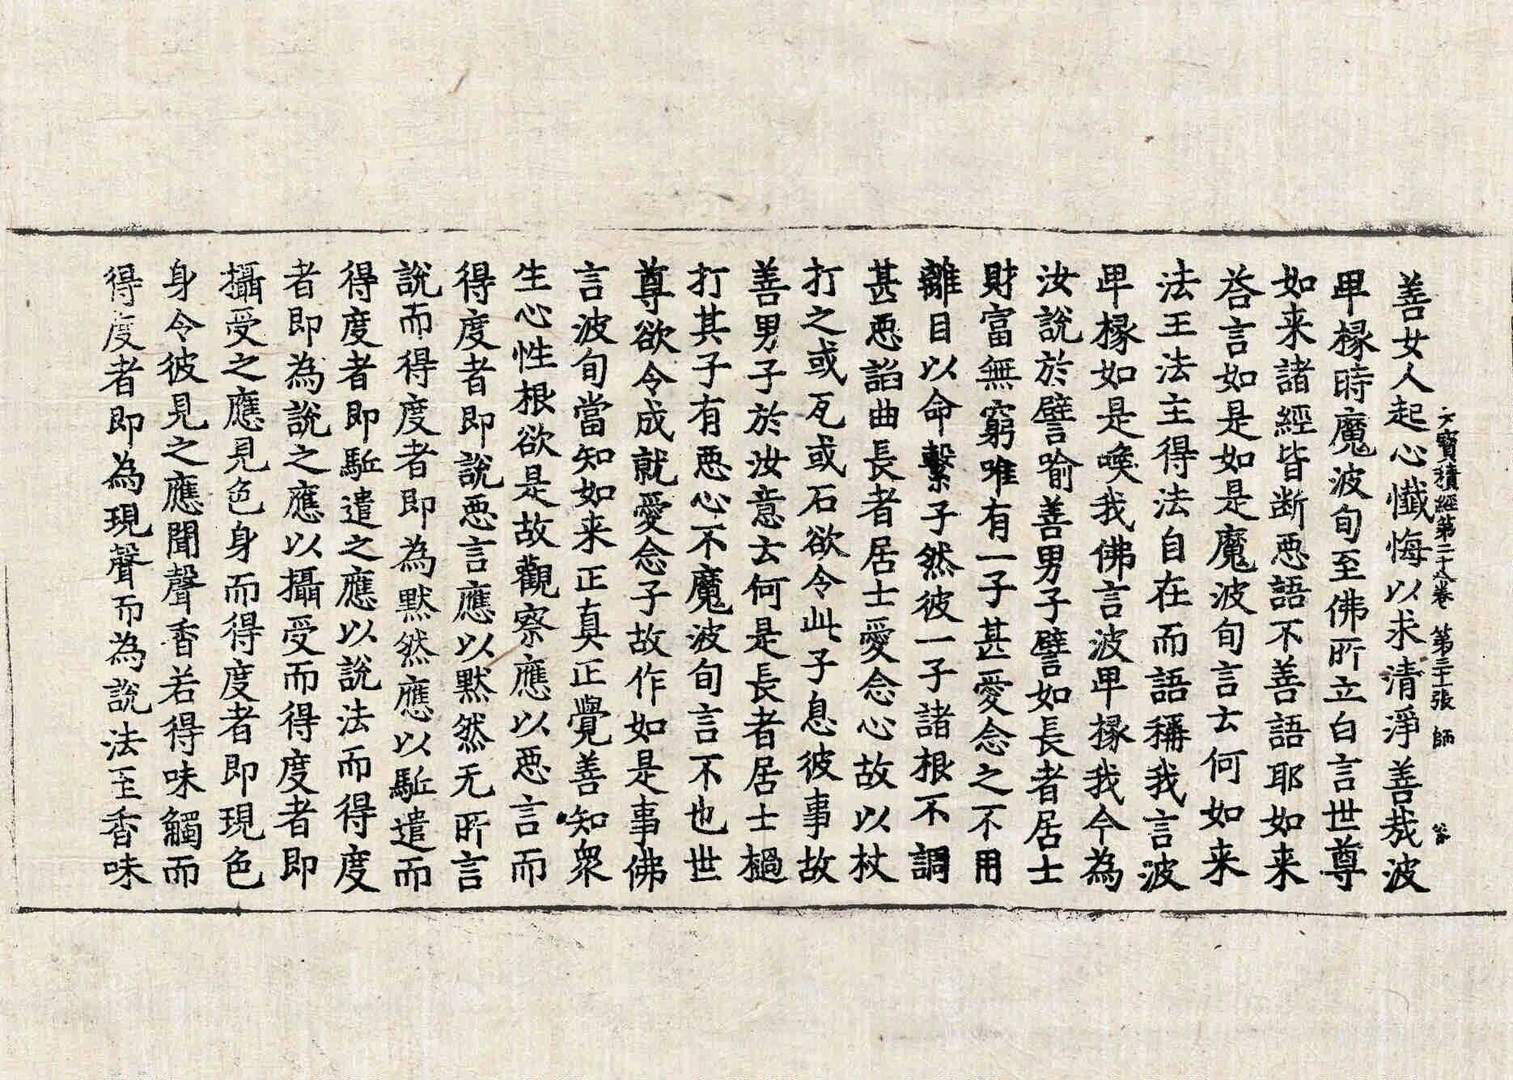 大寶積經第二十八卷 第三十張 師
善女人起心懺悔以求清淨善哉波
卑掾時魔波旬至佛所立白言世尊
如来諸經皆断悪語不善語耶如来
荅言如是如是魔波旬言云何如来
法王法主得法自在而語稱我言波
卑掾如是喚我佛言波卑掾我今為
汝說於譬喻善男子譬如長者居士
財富無窮唯有一子甚愛念之不用
離目以命繫子然彼一子諸根不調
甚悪諂曲長者居士愛念心故以杖
打之或瓦或石欲令此子息彼事故
善男子於汝意云何是長者居士檛
打其子有悪心不魔波旬言不也世
尊欲令成就愛念子故作如是事佛
言波旬當知如来正真正覺善知衆
生心性根欲是故觀察應以悪言而
得度者即說悪言應以默然无所言
說而得度者即為默然應以駈遣而
得度者即駈遣之應以說法而得度
者即為說之應以攝受而得度者即
攝受之應見色身而得度者即現色
身令彼見之應聞聲香若得味觸而
得度者即為現聲而為說法至香味